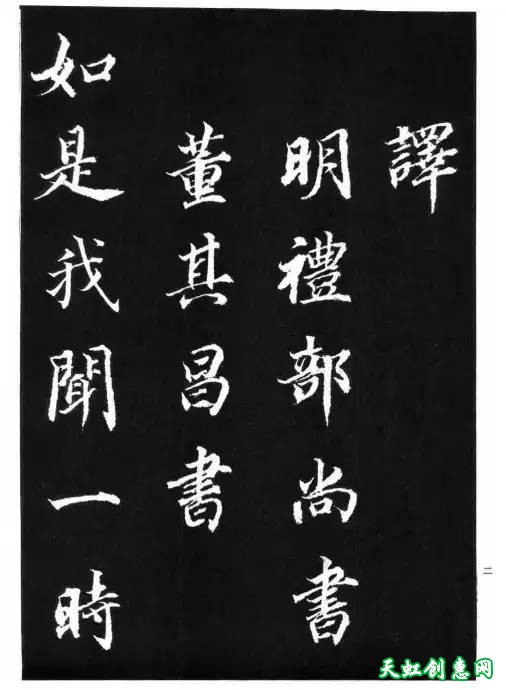 譯
明禮部尚書
董其昌書
如是我聞一時
二
天虹创惠网